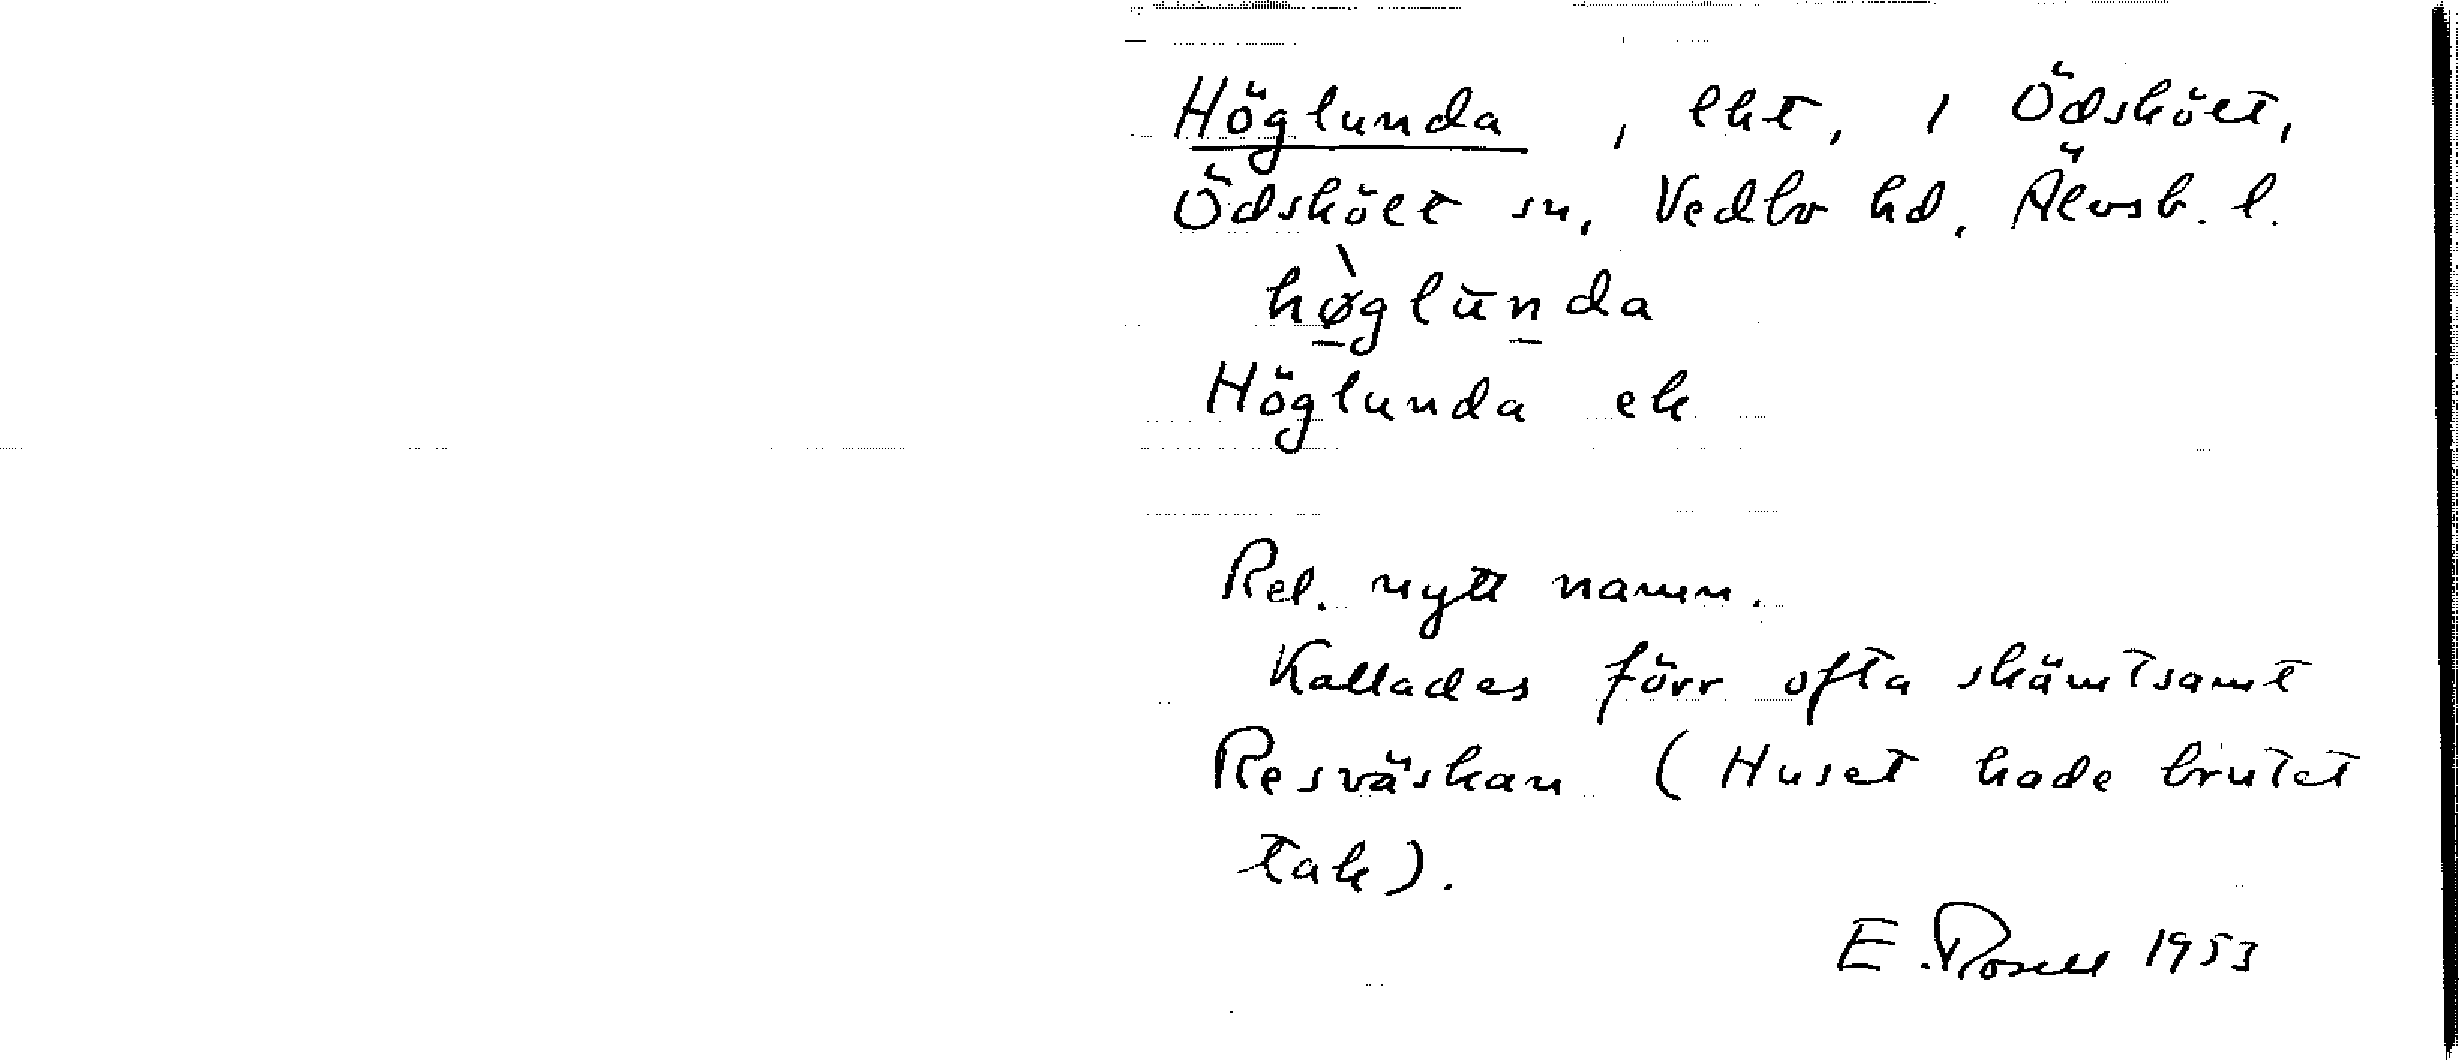 Höglunda, lht, i Ödskölt,
Ödskölt sn, Vedbo hd, Älvsb. l.
hø̀glūnda
Höglunda ek
Rel. nytt namn.
Kallades förr ofta skämtsamt
Resväskan (Huset hade brutet
tak).
E. Rosell 1953